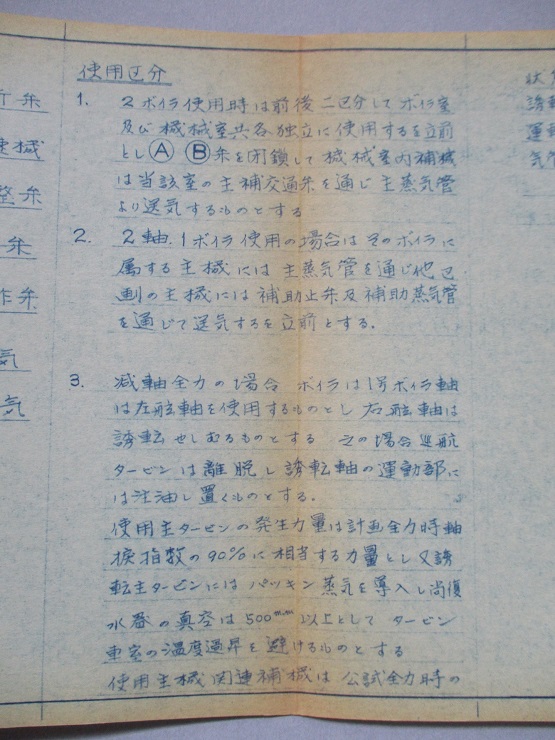 使用区分
1. 2ボイラ使用時は前後二区分してボイラ室
及び機械室共各独立に使用するを立前
としⒶ Ⓑ弁を閉鎖して機械室内補機
は当該室の主補交通弁を通じ主蒸気管
より送気するものとする
2. 2軸.1ボイラ使用の場合はそのボイラに
属する主機には主蒸気管を通じ他区
劃の主機には補助止弁及補助蒸気管
を通じて送気するを立前とする.
3. 減軸全力の場合 ボイラは1号ボイラ軸
は左舷軸を使用するものとし右舷軸は
誘転せしむるものとする この場合巡航
タービンは離脱し誘転軸の運動部に
は注油し置くものとする.
使用主タービンの発生力量は計画全力時軸
捩指数の90%に相当する力量とし又誘
転主タービンにはパッキン蒸気を導入し尚復
水器の真空は500mm以上として タービン
車室の温度過昇を避けるものとする
使用主機関連補機は公試全力時の
弁
機
弁
弁
弁
気
気
状
誘
運
気